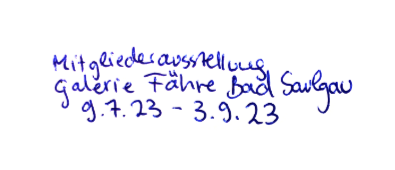 Mitgliederausstellung
Galerie Fähre Bad Saulgau
9.7.23 - 3.9.23